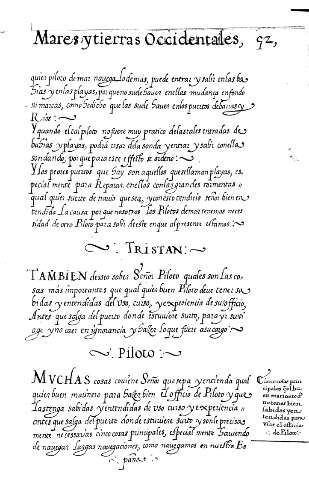 Mares y tierras Occidentales, 92,
quier piloto de mar navega lo demas, puede entrar y salir en las ba
hias y en las playas, porque no suele haver en ellas mudança en fondo
ni marcas, como he dicho que las suele haver en los puertos de barras y
Rios:
Y quando el tal piloto no fuere muy pratico de las tales entradas de
bahias y playas, podra usar de la sonda y entrar y salir con ella
sondando, porque para este effecto se ordeno:
Y los peores puertos que hay son aquellos que se llaman playas, es
pecial mente para Reparar en ellos con las grandes tormentas a
qual quier suerte de navio que sea, y con esto tendreis señor bien en
tendida La causa porque nosotros los Pilotos demos tenemos neces
sidad de otro Piloto para salir de este en que al presente estamos:
TRISTAN:
TAMBIEN desseo saber Señor Piloto quales son las co
sas mas importantes que qual quier buen Piloto deve tener sa
bidas y entendidas del uso, curso, y experiencia de su officio,
Antes que salga del puerto donde estuviere surto, para su navi
age y no caer en ignorancia y hazer lo que fuere a su cargo:
Piloto:
MUCHAS cosas conviene Señor que sepa y entienda qual
quier buen marinero para hazer bien el officio de Piloto y que
las tenga sabidas y entendidas de uso curso y experiencia
antes que salga del puerto donde estuviere surto y son le precisa
mente necessarias cinco cosas principales, especial mente haviendo
de navegar largas navegaciones, como navegamos en nuestra Es
paña
Cinco cosas prin
cipales qual bu
en marinero
a tener bien
sabidas y en
tendidas para
usar el officio
de Piloto